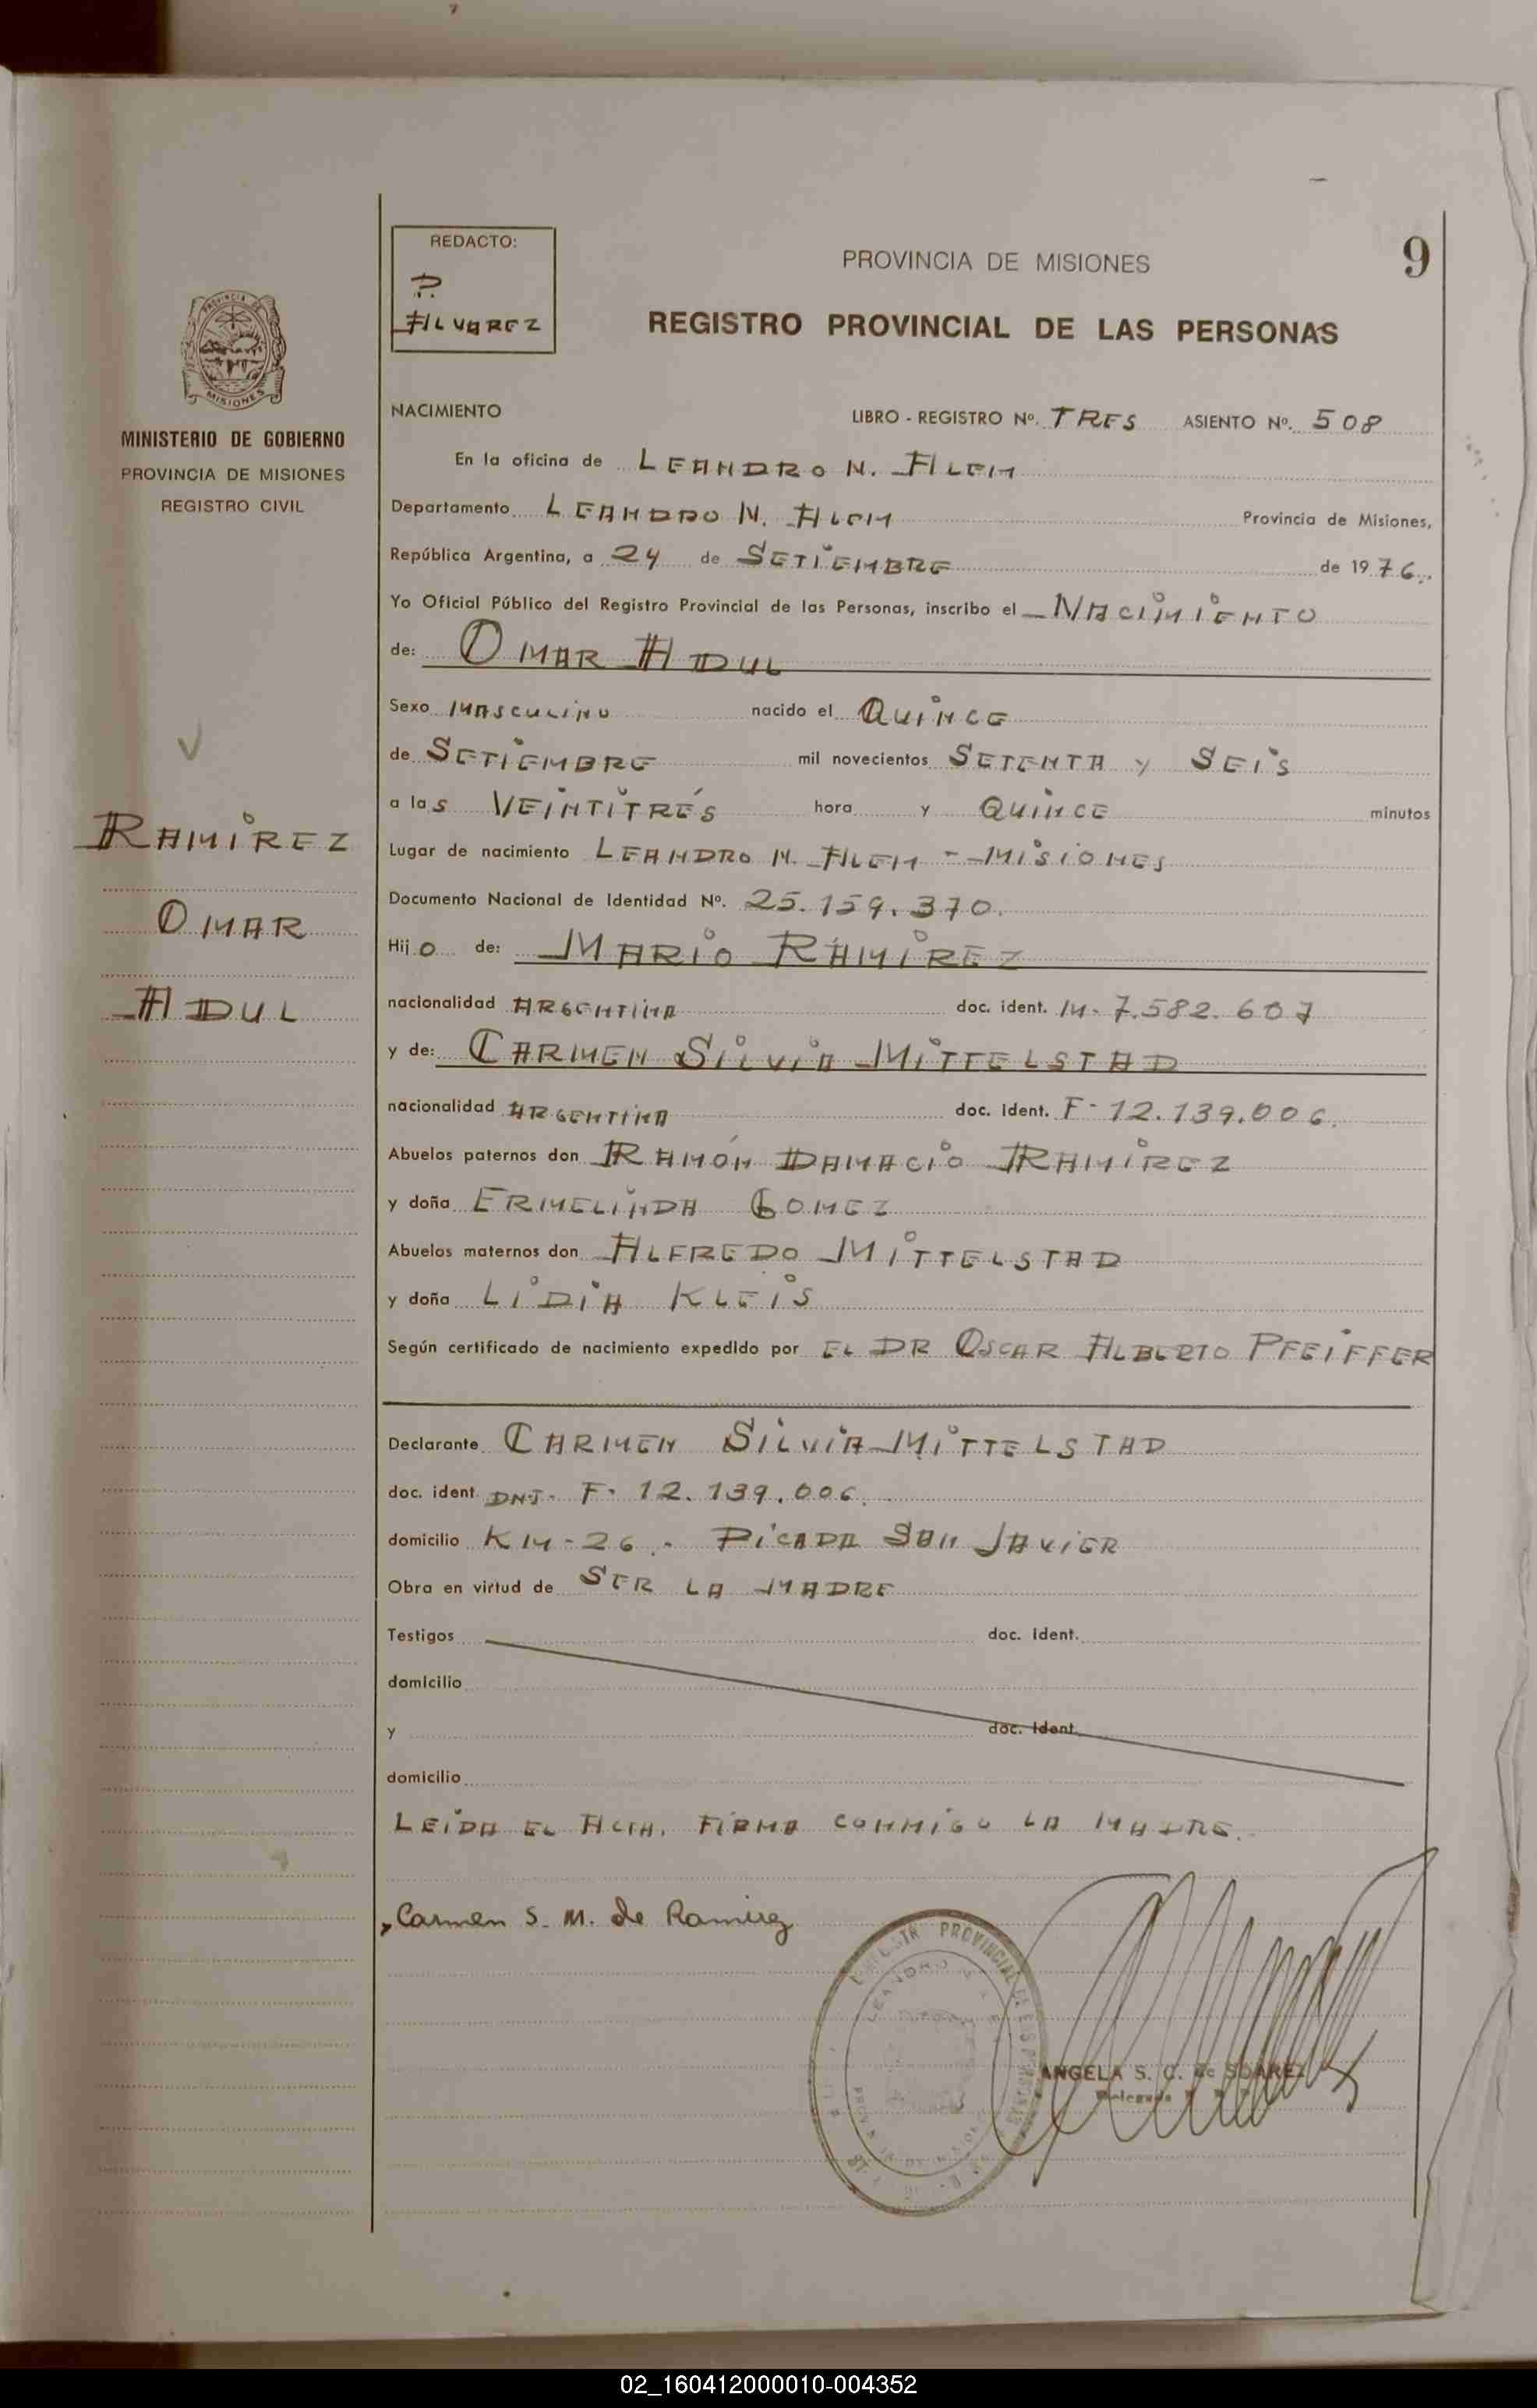 REDACTO:
P.
ALVAREZ
PROVINCIA DE MISIONES
9
REGISTRO PROVINCIAL DE LAS PERSONAS
MISIONES
MINISTERIO DE GOBIERNO
PROVINCIA DE MISIONES
REGISTRO CIVIL
RAMIREZ
OMAR
ADUL
NACIMIENTO LIBRO - REGISTRO Nº. TRES ASIENTO Nº. 508
En la oficina de LEANDRO N. ALEM
Departamento LEANDRO N. ALEM Provincia de Misiones,
República Argentina, a 24 de SETIEMBRE de 1976.
Yo Oficial Público del Registro Provincial de las Personas, inscribo el NACIMIENTO
de: OMAR ADUL
Sexo MASCULINO nacido el QUINCE
de SETIEMBRE mil novecientos SETENTA y SEIS
a las VEINTITRÉS hora y QUINCE minutos
Lugar de nacimiento LEANDRO N. ALEM - MISIONES
Documento Nacional de Identidad Nº. 25.159.370.
Hijo de: MARIO RAMIREZ
nacionalidad ARGENTINA doc. ident. M. 7.582.607
y de: CARMEN SILVIA MITTELSTAD
nacionalidad ARGENTINA doc. ident. F- 12.139.006.
Abuelos paternos don RAMÓN DAMACIO RAMIREZ
y doña ERMELINDA GOMEZ
Abuelos maternos don ALFREDO MITTELSTAD
y doña LIDIA KLEIS
Según certificado de nacimiento expedido por EL DR OSCAR ALBERTO PFEIFFER
Declarante CARMEN SILVIA MITTELSTAD
doc. ident. DNI- F. 12.139.006.
domicilio KM-26.- PICADA SAN JAVIER
Obra en virtud de SER LA MADRE
Testigos doc. ident.
domicilio
y doc. ident.
domicilio
LEIDA EL ACTA. FIRMA CONMIGO LA MADRE.
Carmen S. M. de Ramirez
PROVINCIAL DE LAS PERSONAS
LEANDRO N. ALEM
ANGELA S. C. de SOAREZ
Delegada
02_160412000010-004352